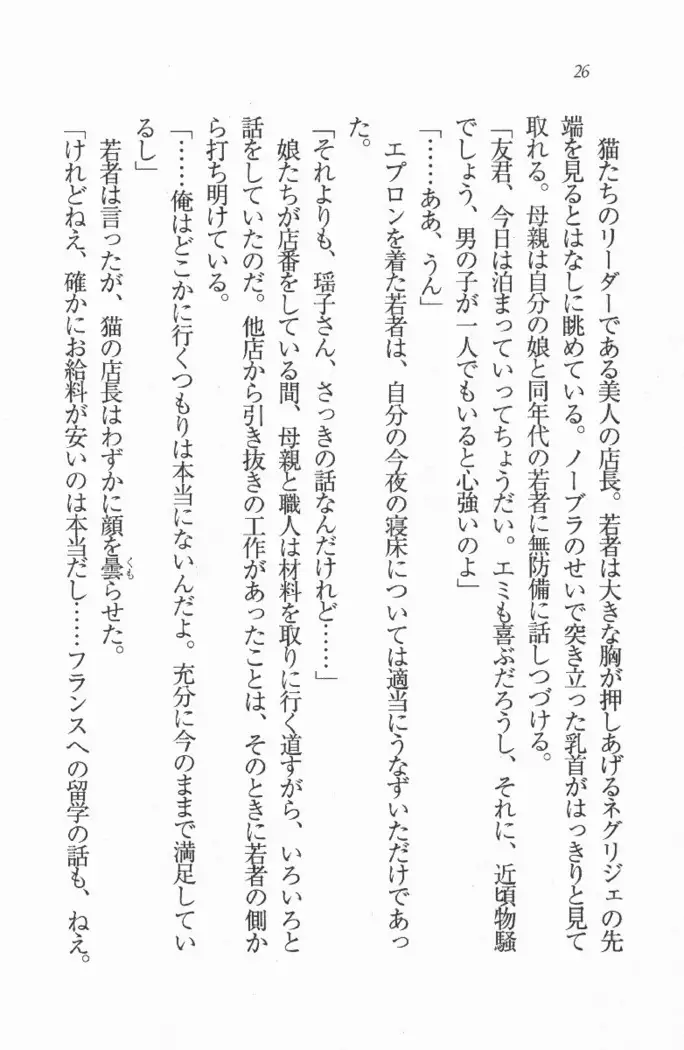 26
猫たちのリーダーである美人の店長。若者は大きな胸が押しあげるネグリジェの先
端を見るとはなしに眺めている。ノーブラのせいで突き立った乳首がはっきりと見て
取れる。母親は自分の娘と同年代の若者に無防備に話しつづける。
「友君、今日は泊まっていってちょうだい。エミも喜ぶだろうし、それに、近頃物騒
でしょう、男の子が一人でもいると心強いのよ」
「……ああ、うん」
エプロンを着た若者は、自分の今夜の寝床については適当にうなずいただけであっ
た。
「それよりも、瑶子さん、さっきの話なんだけれど……」
娘たちが店番をしている間、母親と職人は材料を取りに行く道すがら、いろいろと
話をしていたのだ。他店から引き抜きの工作があったことは、そのときに若者の側か
ら打ち明けている。
「……俺はどこかに行くつもりは本当にないんだよ。充分に今のままで満足してい
るし」
若者は言ったが、猫の店長はわずかに顔を曇らせた。
くも
「けれどねえ、確かにお給料が安いのは本当だし……フランスへの留学の話も、ねえ。